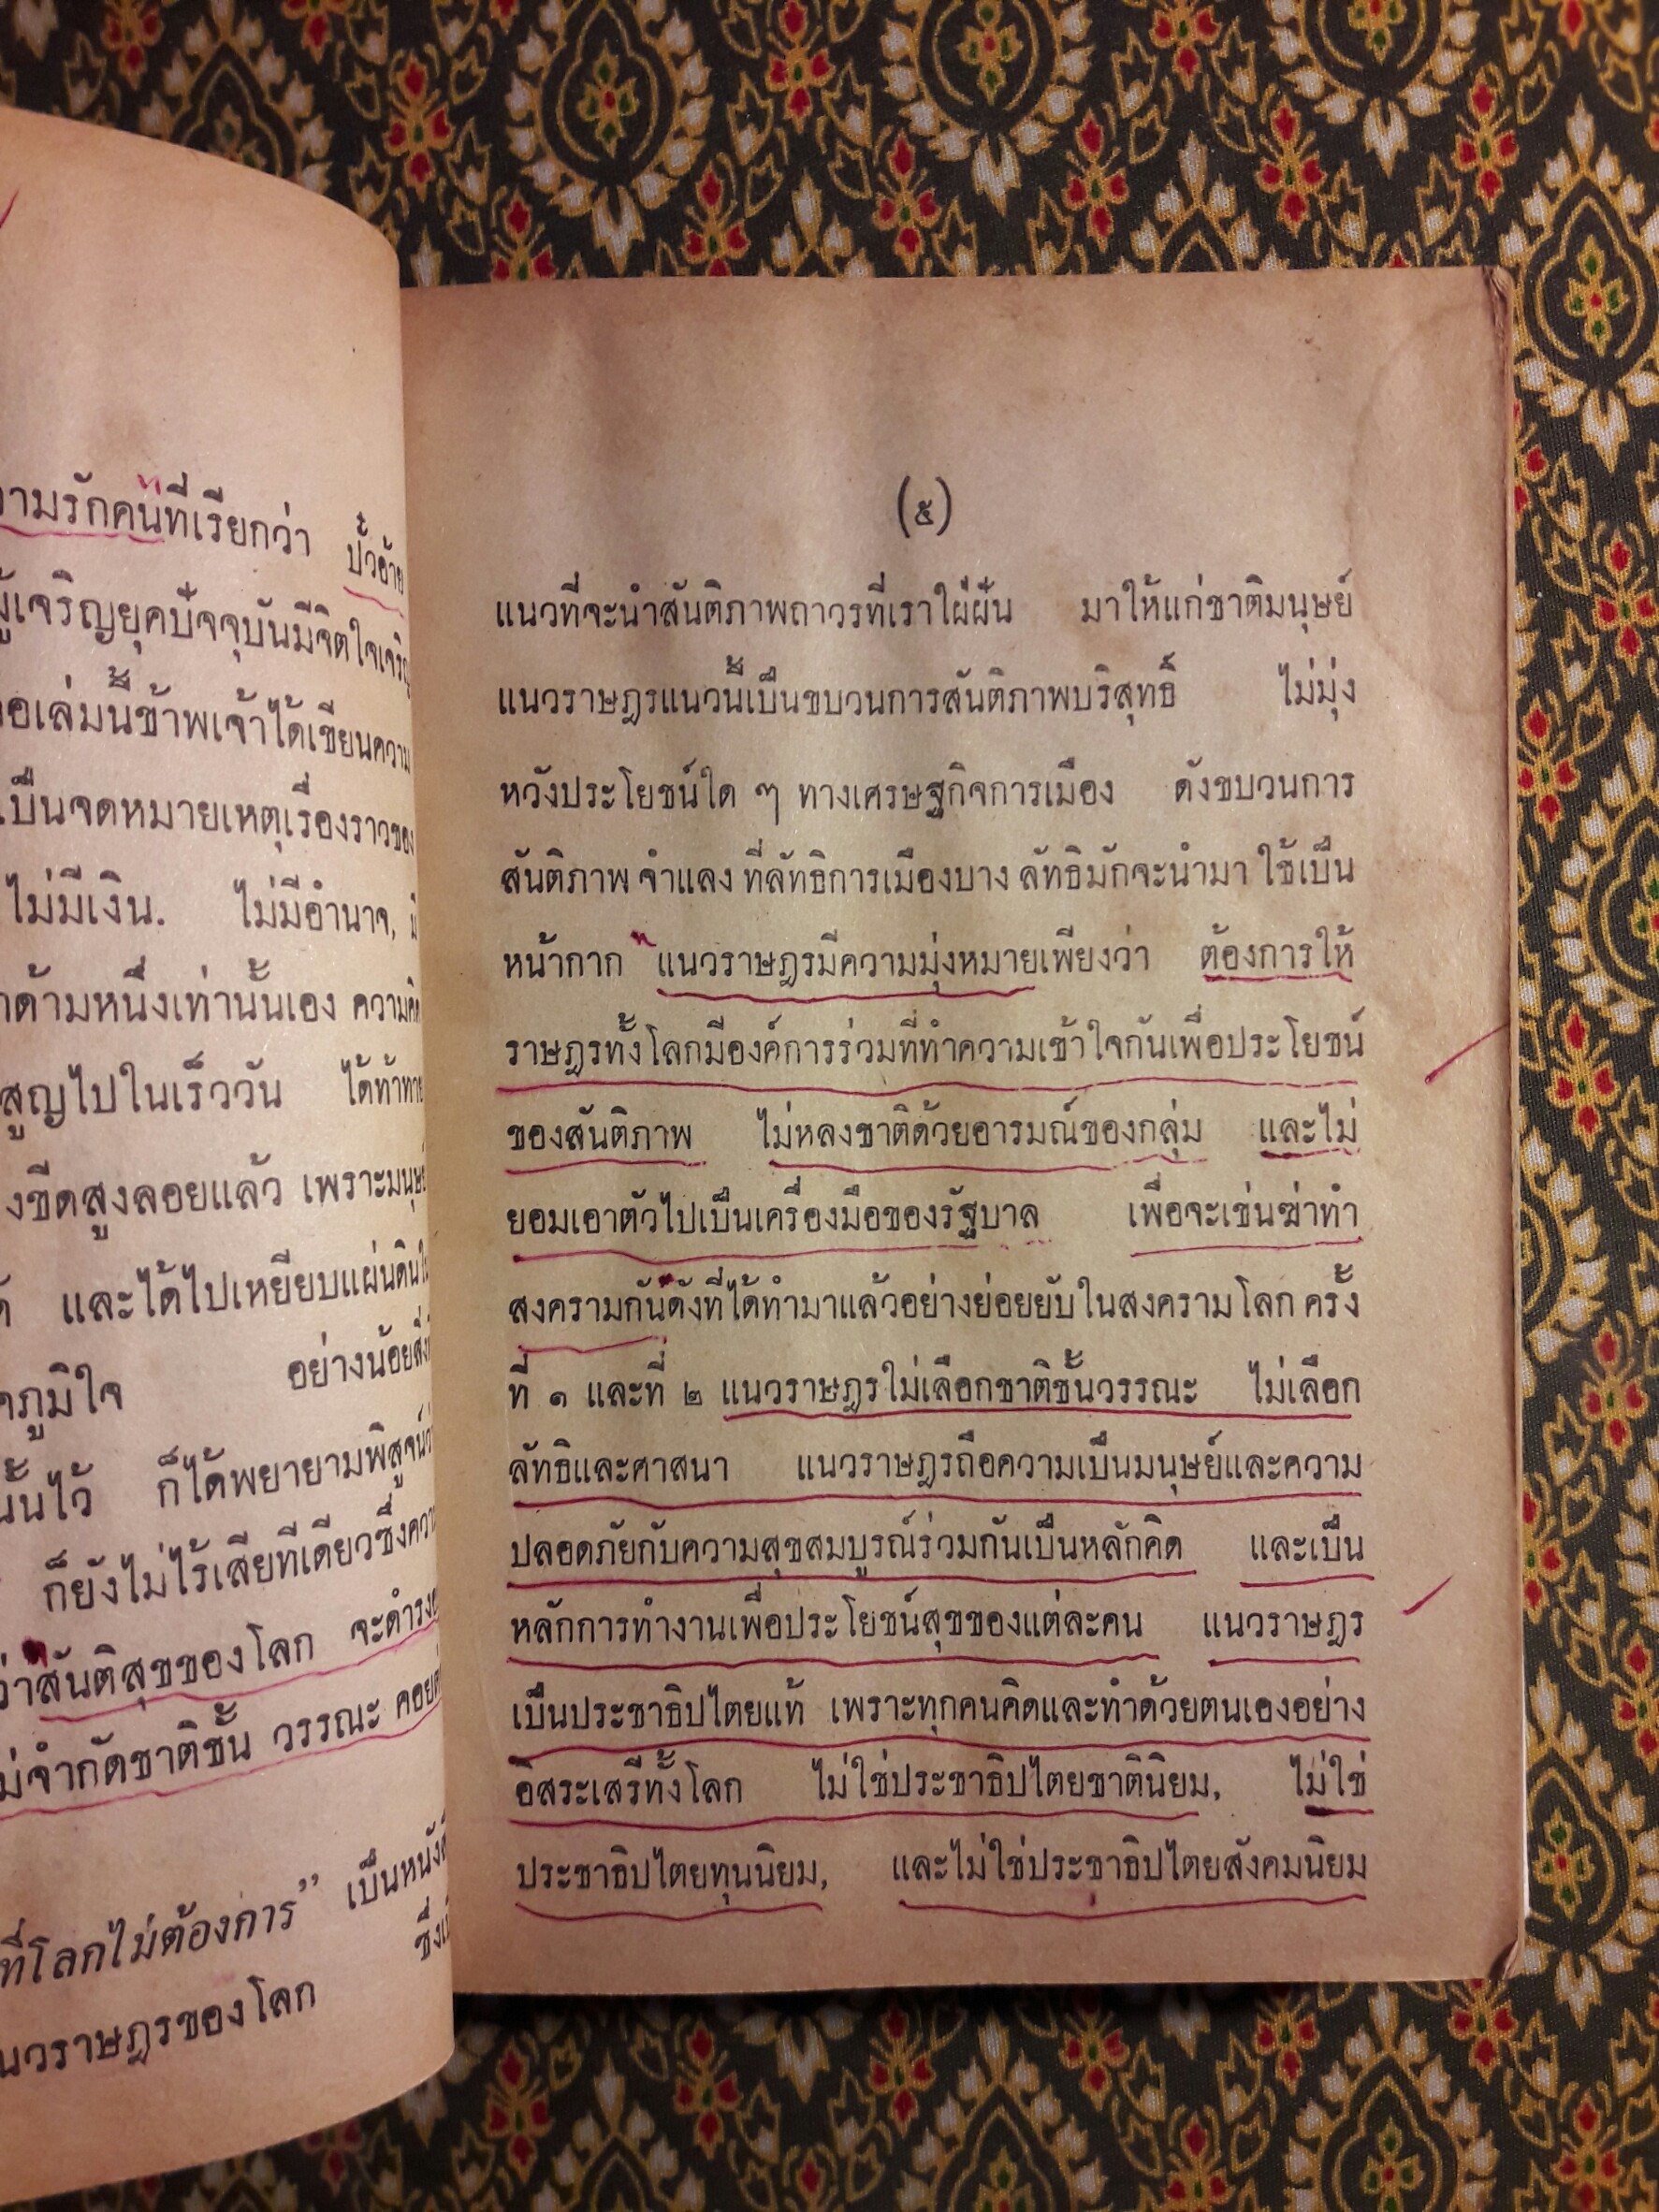 ความรักคนที่เรียกว่า ปั้วอ้าย
ผู้เจริญยุคปัจจุบันมีจิตใจเจริญ
เล่มนี้ข้าพเจ้าได้เขียนความ
เป็นจดหมายเหตุเรื่องราวของ
ไม่มีเงิน. ไม่มีอำนาจ,
ด้ามหนึ่งเท่านั้นเอง ความคิด
สูญไปในเร็ววัน ได้ท้าทาย
ขีดสูงลอยแล้ว เพราะมนุษย์
และได้ไปเหยียบแผ่นดิน
ภูมิใจ อย่างน้อย
นั้นไว้ ก็ได้พยายามพิสูจน์
ก็ยังไม่ไร้เสียทีเดียวซึ่งความ
ว่าสันติสุขของโลก จะดำรง
ไม่จำกัดชาติชั้น วรรณะ คอย
ที่โลกไม่ต้องการ" เป็นหนังสือ
แนวราษฎรของโลก ซึ่ง
(๕)
แนวที่จะนำสันติภาพถาวรที่เราใฝ่ฝัน มาให้แก่ชาติมนุษย์
แนวราษฎรแนวนี้เป็นขบวนการสันติภาพบริสุทธิ์ ไม่มุ่ง
หวังประโยชน์ใด ๆ ทางเศรษฐกิจการเมือง ดังขบวนการ
สันติภาพ จำแลง ที่ลัทธิการเมืองบาง ลัทธิมักจะนำมา ใช้เป็น
หน้ากาก "แนวราษฎรมีความมุ่งหมายเพียงว่า ต้องการให้
ราษฎรทั้งโลกมีองค์การร่วมที่ทำความเข้าใจกันเพื่อประโยชน์
ของสันติภาพ ไม่หลงชาติด้วยอารมณ์ของกลุ่ม และไม่
ยอมเอาตัวไปเป็นเครื่องมือของรัฐบาล เพื่อจะเข่นฆ่าทำ
สงครามกัน"ดังที่ได้ทำมาแล้วอย่างย่อยยับในสงครามโลก ครั้ง
ที่ ๑ และที่ ๒ แนวราษฎรไม่เลือกชาติชั้นวรรณะ ไม่เลือก
ลัทธิและศาสนา แนวราษฎรถือความเป็นมนุษย์และความ
ปลอดภัยกับความสุขสมบูรณ์ร่วมกันเป็นหลักคิด และเป็น
หลักการทำงานเพื่อประโยชน์สุขของแต่ละคน แนวราษฎร
เป็นประชาธิปไตยแท้ เพราะทุกคนคิดและทำด้วยตนเองอย่าง
อิสระเสรีทั้งโลก ไม่ใช่ประชาธิปไตยชาตินิยม, ไม่ใช่
ประชาธิปไตยทุนนิยม, และไม่ใช่ประชาธิปไตยสังคมนิยม